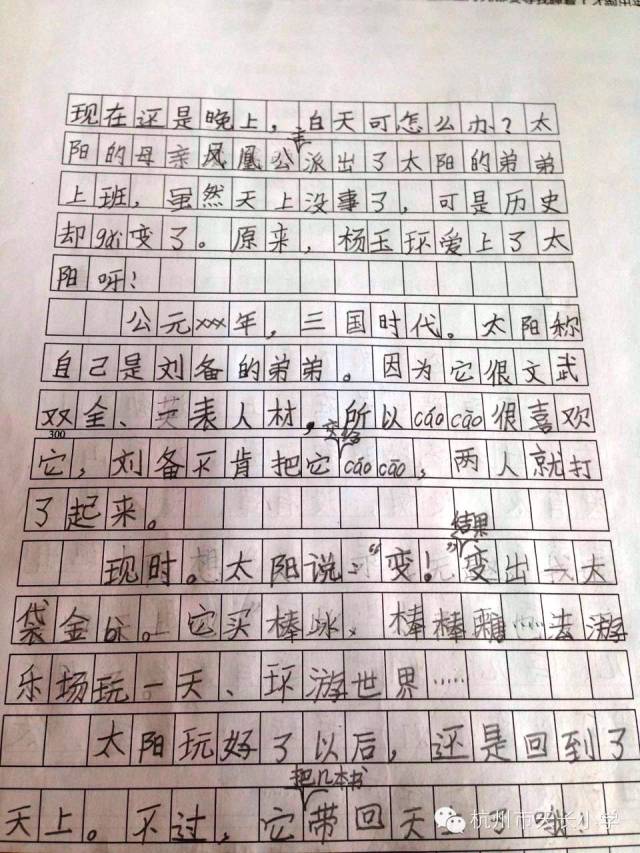 现在还是晚上，白天可怎么办？太
阳的母亲凤凰公主派出了太阳的弟弟
上班，虽然天上没事了，可是历史
却gǎi变了。原来，杨玉环爱上了太
阳呀！
公元xxx年，三国时代。太阳称
自己是刘备的弟弟。因为它很文武
双全、英表人材，所以cáo cāo很喜欢
300
它，刘备不肯把它交给cáo cāo，两人就打
了起来。
现时。太阳说：“变！”结果变出一大
袋金bì。它买棒冰、棒棒糖……去游
乐场玩一天、环游世界……
太阳玩好了以后，还是回到了
天上。不过，它把几本书带回天
杭州市 小学